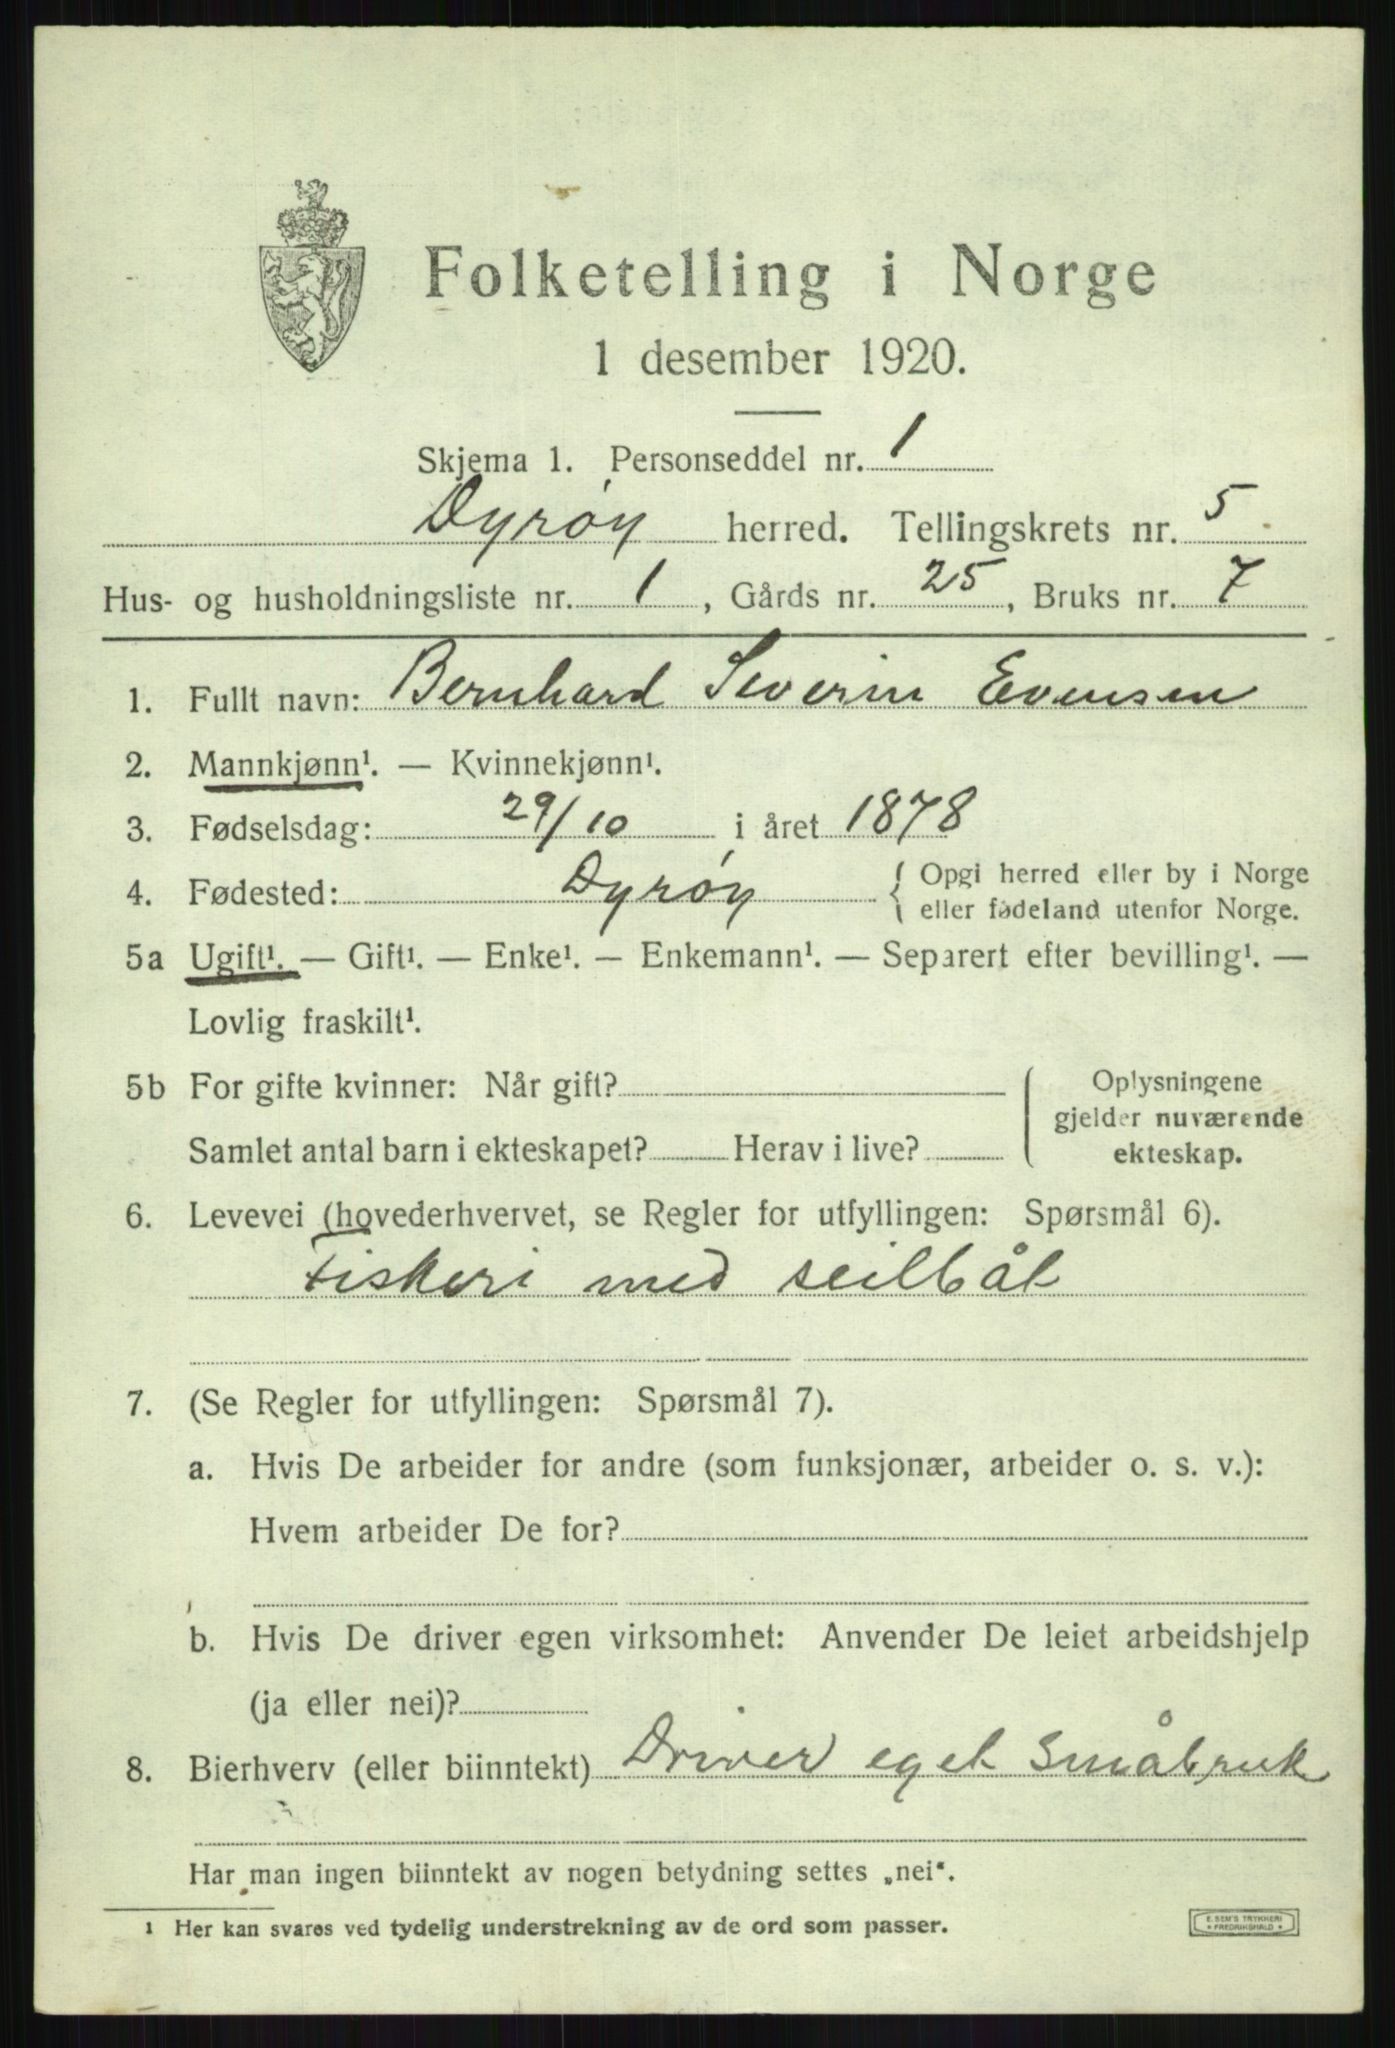 Folketelling i Norge
1 desember 1920.
Skjema 1. Personseddel nr. 1
Dyrøy herred. Tellingskrets nr. 5
Hus- og husholdningsliste nr. 1, Gårds nr. 25, Bruks nr. 7
1. Fullt navn: Bernhard Severin Evensen
2. Mannkjønn¹. — Kvinnekjønn¹.
3. Fødselsdag: 29/10 i året 1878
4. Fødested: Dyrøy { Opgi herred eller by i Norge
eller fødeland utenfor Norge.
5a Ugift¹. — Gift¹. — Enke¹. — Enkemann¹. — Separert efter bevilling¹. —
Lovlig fraskilt¹.
5b For gifte kvinner: Når gift?
Samlet antal barn i ekteskapet? Herav i live?
Oplysningene
gjelder nuværende
ekteskap.
6. Levevei (hovederhvervet, se Regler for utfyllingen: Spørsmål 6).
Fiskeri med seilbåt
7. (Se Regler for utfyllingen: Spørsmål 7).
a. Hvis De arbeider for andre (som funksjonær, arbeider o. s. v.):
Hvem arbeider De for?
b. Hvis De driver egen virksomhet: Anvender De leiet arbeidshjelp
(ja eller nei)?
8. Bierhverv (eller biinntekt) Driver eget Småbruk
Har man ingen biinntekt av nogen betydning settes „nei“.
¹ Her kan svares ved tydelig understrekning av de ord som passer.
E. SEM'S TRYKKERI
* FREDRIKSHALD *